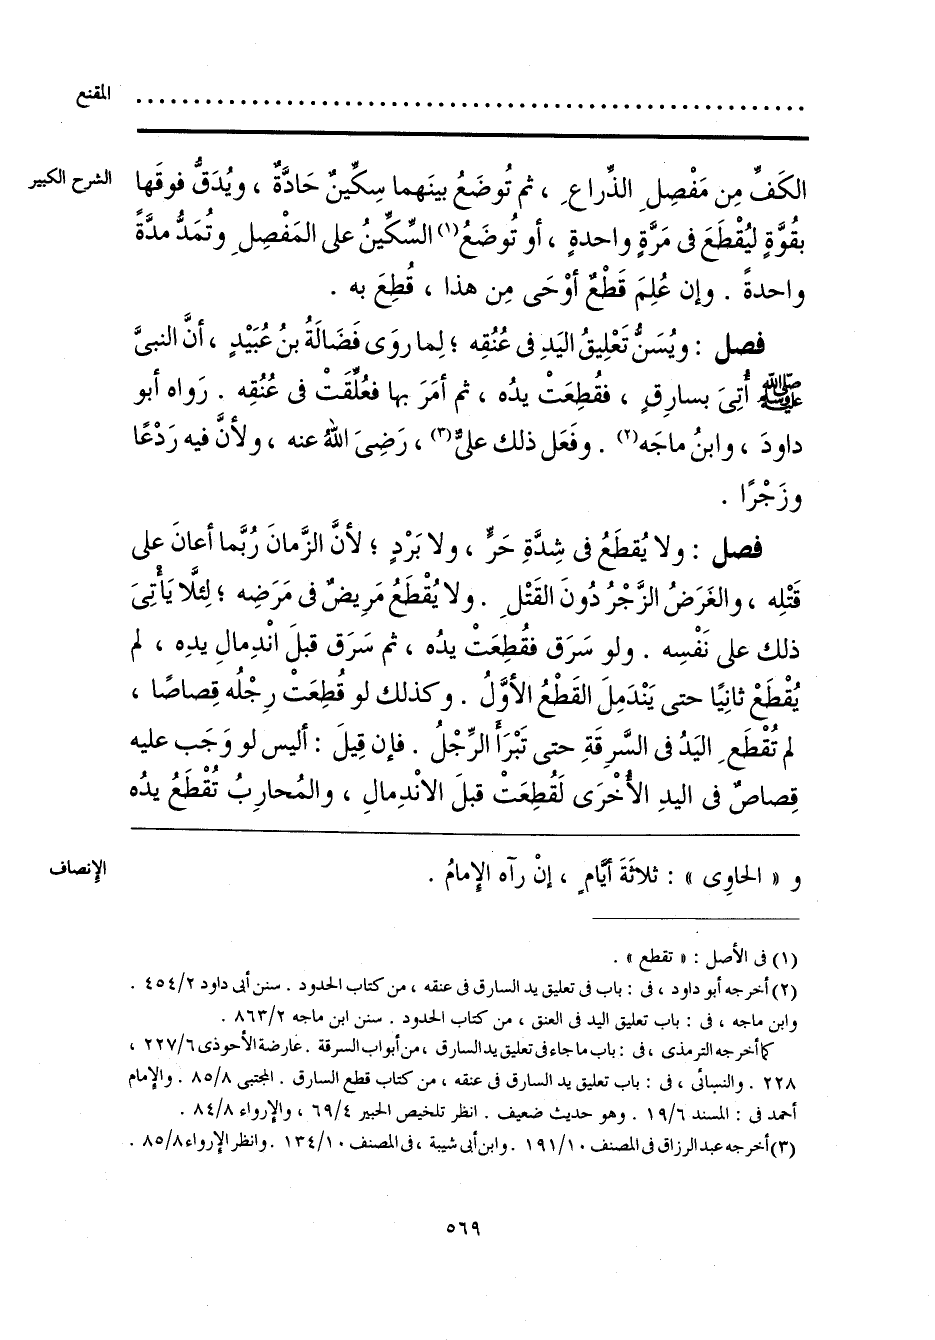 المقنع
................................................................
الشرح الكبير
الكَفِّ مِن مَفْصِلِ الذِّراعِ ، ثم تُوضَعُ بينَهما سِكِّينٌ حَادَّةٌ ، ويُدَقُّ فوقَها
بقُوَّةٍ ليُقْطَعَ فى مَرَّةٍ واحدةٍ ، أو تُوضَعُ(١) السِّكِّينُ على المَفْصِلِ وتُمَدُّ مدةً
واحدةً . وإن عُلِمَ قَطْعٌ أوْحَى مِن هذا ، قُطِعَ به .
فصل : ويُسَنُّ تَعْلِيقُ اليَدِ فى عُنُقِه ؛ لِما روَى فَضَالَةُ بنُ عُبَيْدٍ ، أنَّ النبىَّ
ﷺ أُتِىَ بسارِقٍ ، فقُطِعَتْ يدُه ، ثم أمَرَ بها فعُلِّقَتْ فى عُنُقِه . رَواه أبو
داودَ ، وابنُ ماجَه(٢) . وفَعَل ذلك علىٌّ(٣) ، رَضِىَ اللهُ عنه ، ولأنَّ فيه رَدْعًا
وزَجْرًا .
فصل : ولا يُقطَعُ فى شِدَّةِ حَرٍّ ، ولا بَرْدٍ ؛ لأنَّ الزَّمانَ رُبَّما أعانَ على
قَتْلِه ، والغَرَضُ الزَّجْرُ دُونَ القَتْلِ . ولا يُقْطَعُ مَرِيضٌ فى مَرَضِه ؛ لِئلَّا يَأْتِىَ
ذلك على نَفْسِه . ولو سَرَق فقُطِعَتْ يدُه ، ثم سَرَق قبلَ انْدِمالِ يدِه ، لم
يُقْطَعْ ثانِيًا حتى يَنْدَمِلَ القَطْعُ الأوَّلُ . وكذلك لو قُطِعَتْ رِجْلُه قِصاصًا ،
لم تُقْطَعِ اليَدُ فى السَّرِقَةِ حتى تَبْرَأَ الرِّجْلُ . فإن قِيلَ : أليس لو وَجَب عليه
قِصاصٌ فى اليدِ الأُخْرَى لَقُطِعَتْ قبلَ الانْدِمالِ ، والمُحارِبُ تُقْطَعُ يدُه
الإنصاف
و « الحاوِى » : ثلاثَةَ أيَّامٍ ، إنْ رآه الإمامُ .
(١) فى الأصل : « تقطع » .
(٢) أخرجه أبو داود ، فى : باب فى تعليق يد السارق فى عنقه ، من كتاب الحدود . سنن أبى داود ٤٥٤/٢ .
وابن ماجه ، فى : باب تعليق اليد فى العنق ، من كتاب الحدود . سنن ابن ماجه ٨٦٣/٢ .
كما أخرجه الترمذى ، فى : باب ما جاء فى تعليق يد السارق ، من أبواب السرقة . عارضة الأحوذى ٢٢٧/٦ ،
٢٢٨ . والنسائى ، فى : باب تعليق يد السارق فى عنقه ، من كتاب قطع السارق . المجتبى ٨٥/٨ . والإمام
أحمد فى : المسند ١٩/٦ . وهو حديث ضعيف . انظر تلخيص الحبير ٦٩/٤ ، والإرواء ٨٤/٨ .
(٣) أخرجه عبد الرزاق فى المصنف ١٩١/١٠ . وابن أبى شيبة ، فى المصنف ١٣٤/١٠ . وانظر الإرواء ٨٥/٨ .
٥٦٩